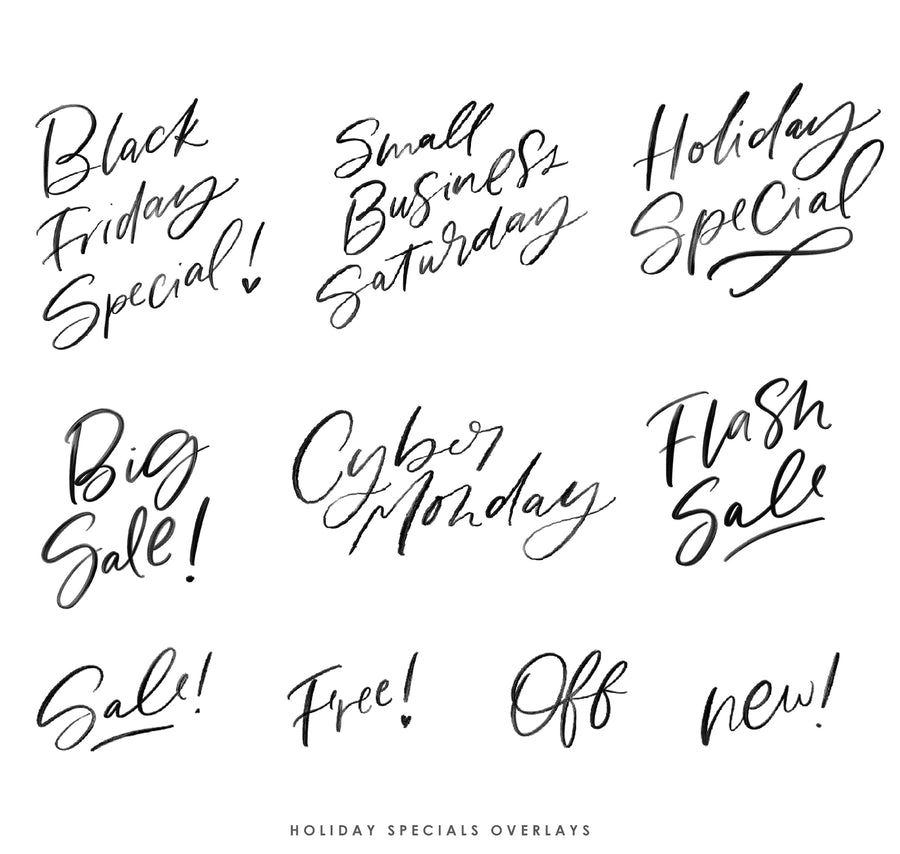 Black
Friday
Special!
Small
Business
Saturday
Holiday
Special
Big
Sale!
Cyber
Monday
Flash
Sale
Sale!
Free!
Off
new!
HOLIDAY SPECIALS OVERLAYS